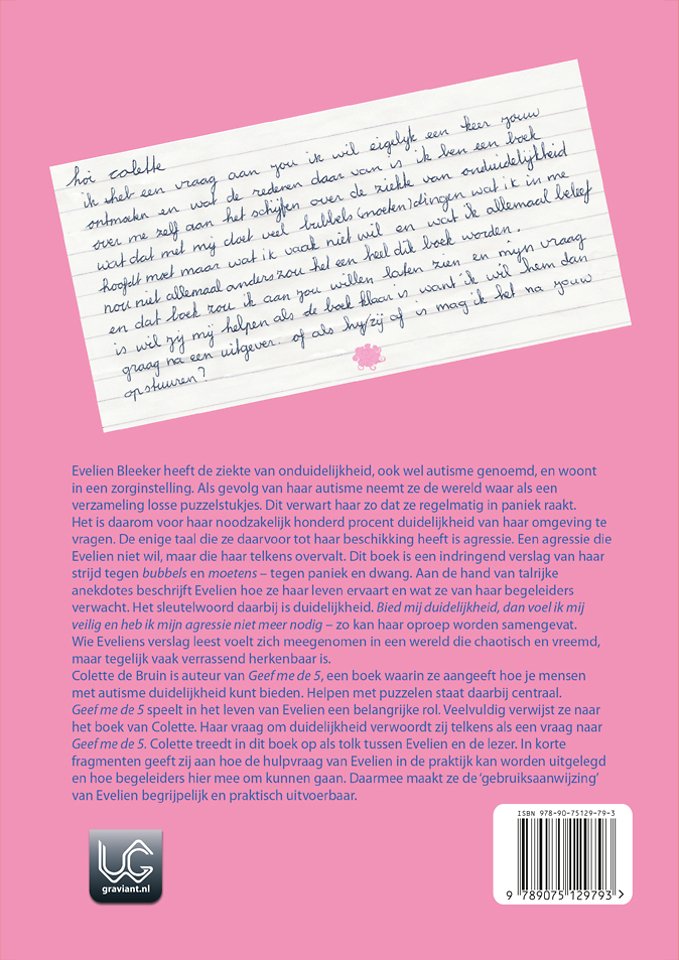 hoi Colette
ik heb een vraag aan you ik wil eigelijk een keer zouw
ontmoeten en wat de rederen daar van is ik ben een boek
over me zelf aan het schijfen over de ziekte van onduidelijkheid
wat dat met mij doet veel bubbels (moeten) dingen wat ik in me
hoofdt moet maar wat ik vaak niet wil en wat ik allemaal beleef
nou niet allemaal anders zou het een heel dik boek worden.
en dat boek zou ik aan zou willen laten zien en mijn vraag
is wil zij mij helpen als de boek klaar is want ik wil hem dan
graag na een uitgever. of als hy/zij of is mag ik het na jouw
opstuuren?
Evelien Bleeker heeft de ziekte van onduidelijkheid, ook wel autisme genoemd, en woont
in een zorginstelling. Als gevolg van haar autisme neemt ze de wereld waar als een
verzameling losse puzzelstukjes. Dit verwart haar zo dat ze regelmatig in paniek raakt.
Het is daarom voor haar noodzakelijk honderd procent duidelijkheid van haar omgeving te
vragen. De enige taal die ze daarvoor tot haar beschikking heeft is agressie. Een agressie die
Evelien niet wil, maar die haar telkens overvalt. Dit boek is een indringend verslag van haar
strijd tegen bubbels en moetens – tegen paniek en dwang. Aan de hand van talrijke
anekdotes beschrijft Evelien hoe ze haar leven ervaart en wat ze van haar begeleiders
verwacht. Het sleutelwoord daarbij is duidelijkheid. Bied mij duidelijkheid, dan voel ik mij
veilig en heb ik mijn agressie niet meer nodig – zo kan haar oproep worden samengevat.
Wie Eveliens verslag leest voelt zich meegenomen in een wereld die chaotisch en vreemd,
maar tegelijk vaak verrassend herkenbaar is.
Colette de Bruin is auteur van Geef me de 5, een boek waarin ze aangeeft hoe je mensen
met autisme duidelijkheid kunt bieden. Helpen met puzzelen staat daarbij centraal.
Geef me de 5 speelt in het leven van Evelien een belangrijke rol. Veelvuldig verwijst ze naar
het boek van Colette. Haar vraag om duidelijkheid verwoordt zij telkens als een vraag naar
Geef me de 5. Colette treedt in dit boek op als tolk tussen Evelien en de lezer. In korte
fragmenten geeft zij aan hoe de hulpvraag van Evelien in de praktijk kan worden uitgelegd
en hoe begeleiders hier mee om kunnen gaan. Daarmee maakt ze de ‘gebruiksaanwijzing’
van Evelien begrijpelijk en praktisch uitvoerbaar.
UG
graviant.nl
ISBN 978-90-75129-79-3
9 789075 129793 >